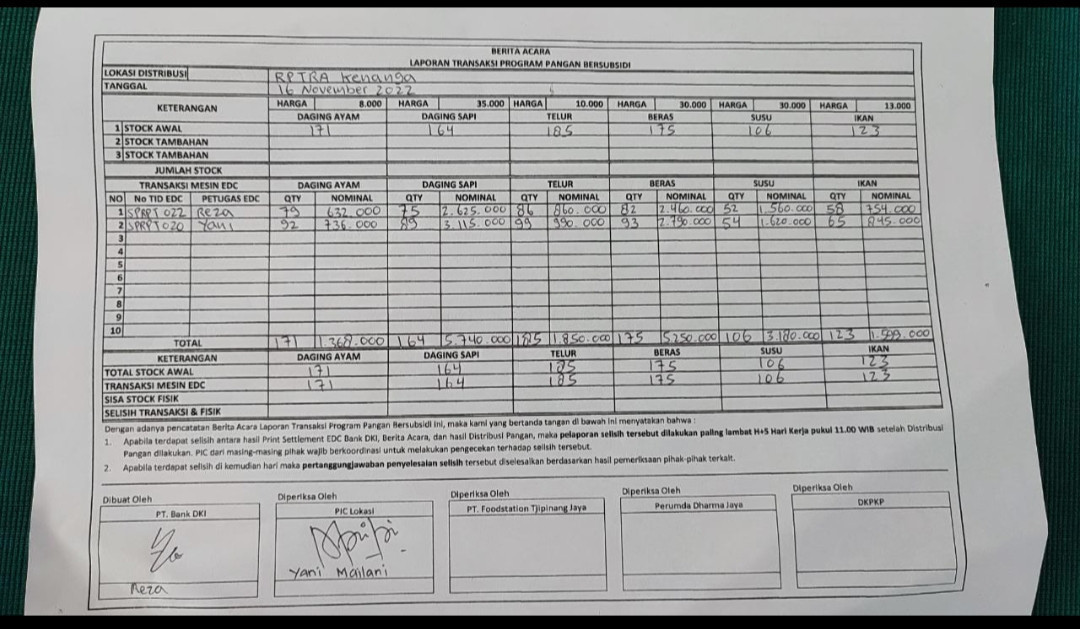 BERITA ACARA
LAPORAN TRANSAKSI PROGRAM PANGAN BERSUBSIDI
LOKASI DISTRIBUSI RPTRA Kenanga
TANGGAL 16 November 2022
KETERANGAN HARGA 8.000 HARGA 35.000 HARGA 10.000 HARGA 30.000 HARGA 30.000 HARGA 13.000
DAGING AYAM DAGING SAPI TELUR BERAS SUSU IKAN
1 STOCK AWAL 171 164 185 175 106 123
2 STOCK TAMBAHAN
3 STOCK TAMBAHAN
JUMLAH STOCK
TRANSAKSI MESIN EDC DAGING AYAM DAGING SAPI TELUR BERAS SUSU IKAN
NO No TID EDC PETUGAS EDC QTY NOMINAL QTY NOMINAL QTY NOMINAL QTY NOMINAL QTY NOMINAL QTY NOMINAL
1 SPRPT022 Reza 79 632.000 75 2.625.000 86 860.000 82 2.460.000 52 1.560.000 58 754.000
2 SPRPT020 Yani 92 736.000 89 3.115.000 99 990.000 93 2.790.000 54 1.620.000 65 845.000
3
4
5
6
7
8
9
10
TOTAL 171 1.368.000 164 5.740.000 185 1.850.000 175 5.250.000 106 3.180.000 123 1.599.000
KETERANGAN DAGING AYAM DAGING SAPI TELUR BERAS SUSU IKAN
TOTAL STOCK AWAL 171 164 185 175 106 123
TRANSAKSI MESIN EDC 171 164 185 175 106 123
SISA STOCK FISIK
SELISIH TRANSAKSI & FISIK
Dengan adanya pencatatan Berita Acara Laporan Transaksi Program Pangan Bersubsidi ini, maka kami yang bertanda tangan di bawah ini menyatakan bahwa :
1. Apabila terdapat selisih antara hasil Print Settlement EDC Bank DKI, Berita Acara, dan hasil Distribusi Pangan, maka pelaporan selisih tersebut dilakukan paling lambat H+5 Hari Kerja pukul 11.00 WIB setelah Distribusi
Pangan dilakukan. PIC dari masing-masing pihak wajib berkoordinasi untuk melakukan pengecekan terhadap selisih tersebut.
2. Apabila terdapat selisih di kemudian hari maka pertanggungjawaban penyelesaian selisih tersebut diselesaikan berdasarkan hasil pemeriksaan pihak-pihak terkait.
Dibuat Oleh Diperiksa Oleh Diperiksa Oleh Diperiksa Oleh Diperiksa Oleh
PT. Bank DKI PIC Lokasi PT. Foodstation Tjipinang Jaya Perumda Dharma Jaya DKPKP
Reza Yani Mailani